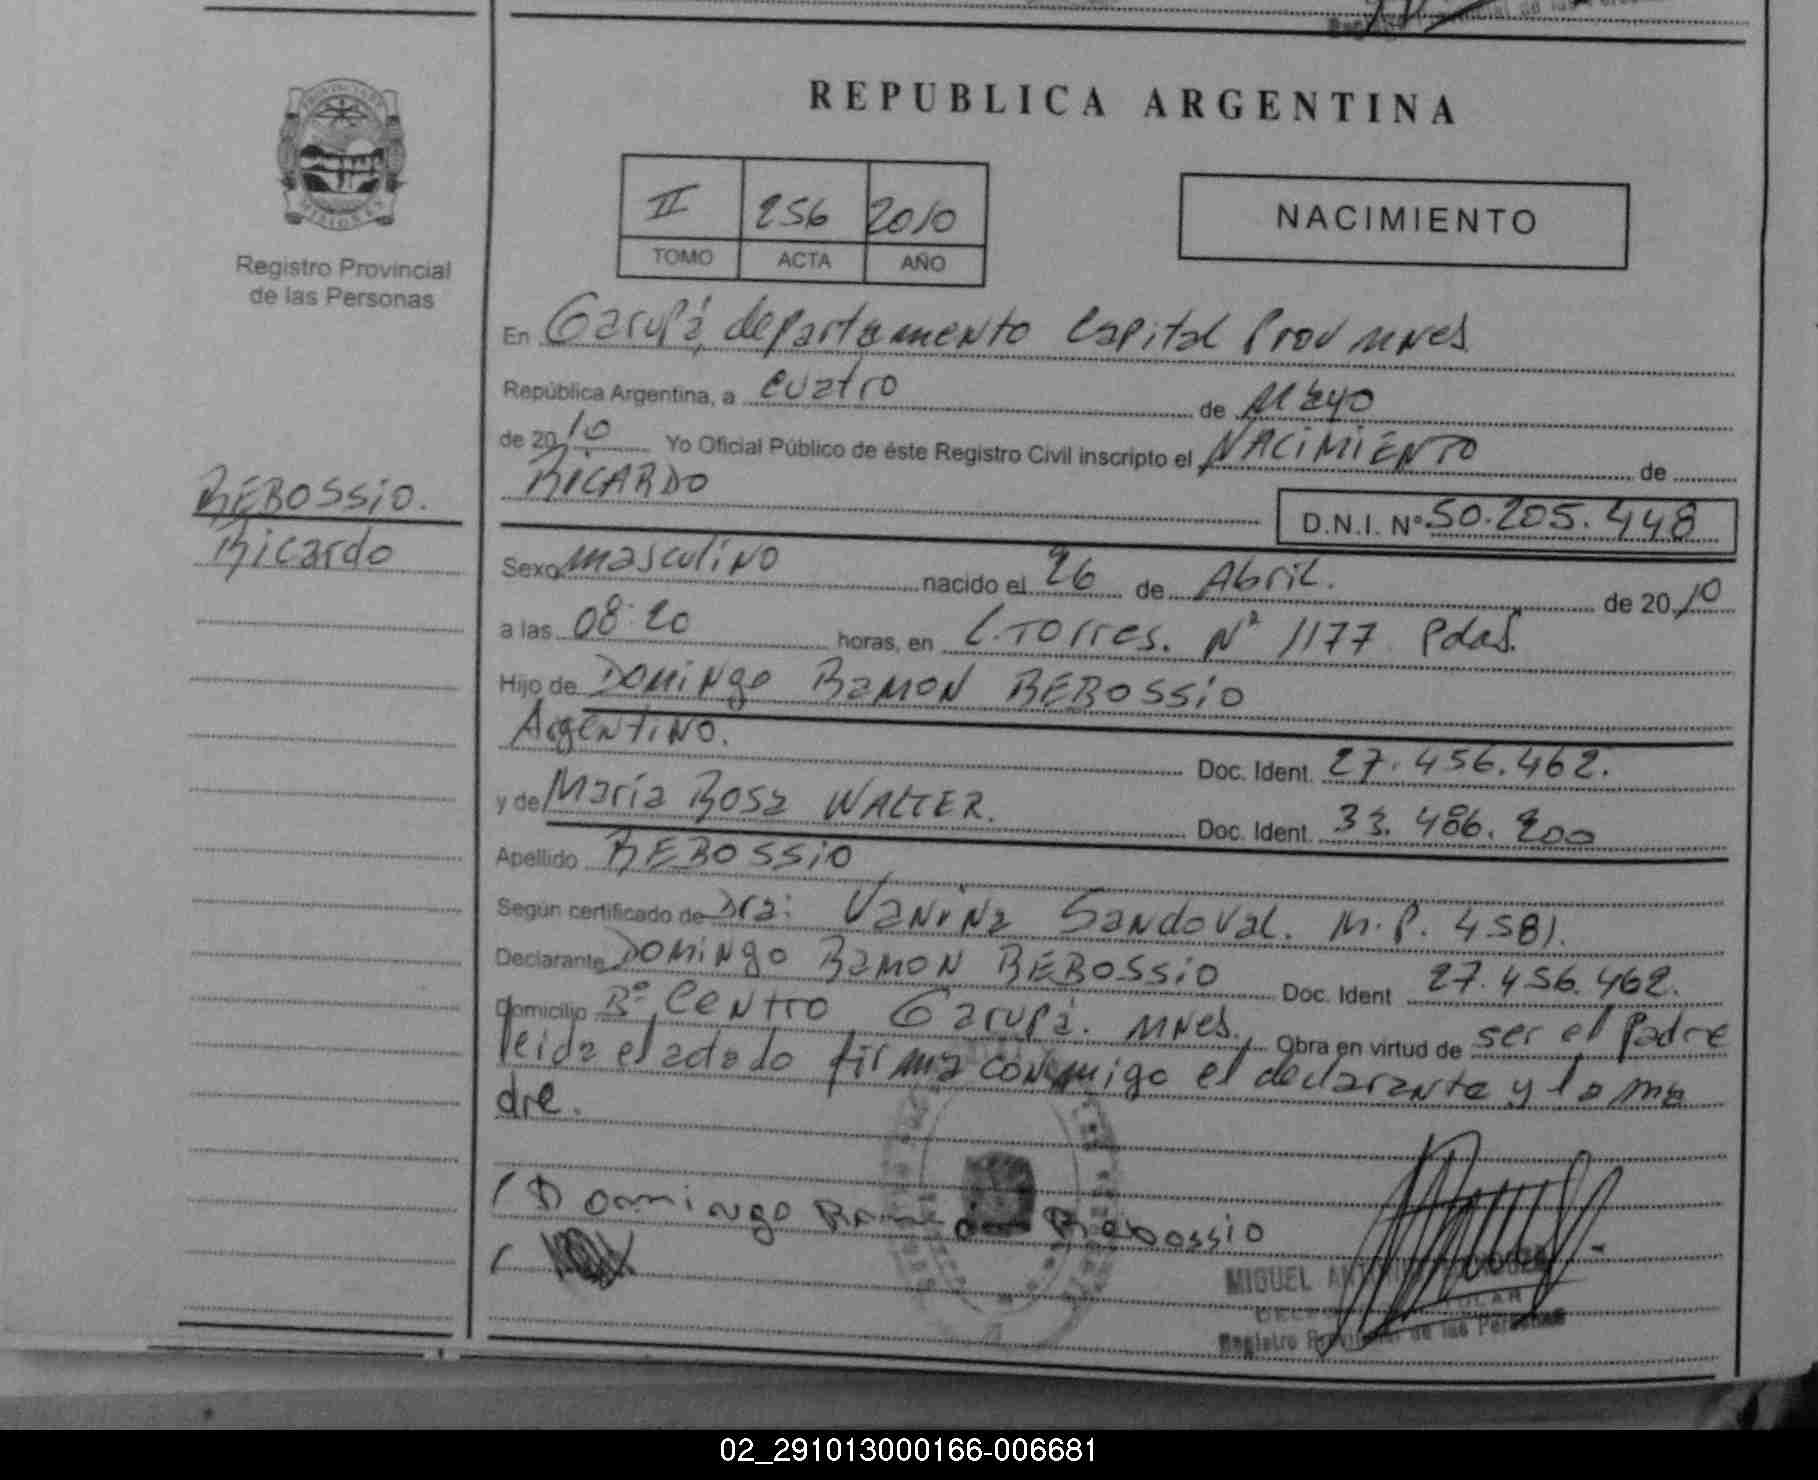 REPUBLICA ARGENTINA
PROVINCIA DE
MISIONES
Registro Provincial
de las Personas
II 256 2010
TOMO ACTA AÑO
NACIMIENTO
En Garupá, departamento Capital Prov Mnes.
República Argentina, a cuatro de Mayo
de 2010 Yo Oficial Público de éste Registro Civil inscripto el NACIMIENTO de
RICARDO
D.N.I. Nº 50.205.448
REBOSSIO.
Ricardo
Sexo masculino nacido el 26 de Abril. de 2010
a las 08:20 horas, en L. Torres. Nº 1177 Pdas.
Hijo de Domingo Ramon REBOSSIO
Argentino. Doc. Ident. 27.456.462.
y de María Rosa WALTER. Doc. Ident. 33.486.200
Apellido REBOSSIO
Según certificado de Dra: Vanina Sandoval. M.P. 4581.
Declarante Domingo Ramon REBOSSIO Doc. Ident 27.456.462.
Domicilio Bº Centro Garupá. Mnes. Obra en virtud de ser el Padre
leida el acta do firma conmigo el declarante y la ma
dre.
Domingo Ramon Rebossio
MIGUEL
Registro Provincial de las Personas
02_291013000166-006681